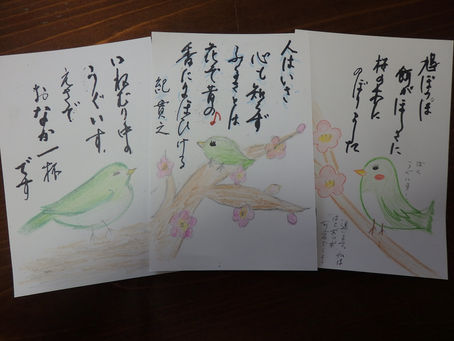 鳩ぽっぽ
餌がほしさに
の木に
のぼりました
ぼく
うぐいす
人はいさ
心も知らず
ふるさとは
花ぞ昔の
香ににほひける
紀貫之
いねむり中の
うぐいす.
えさで
おなか一杯
です